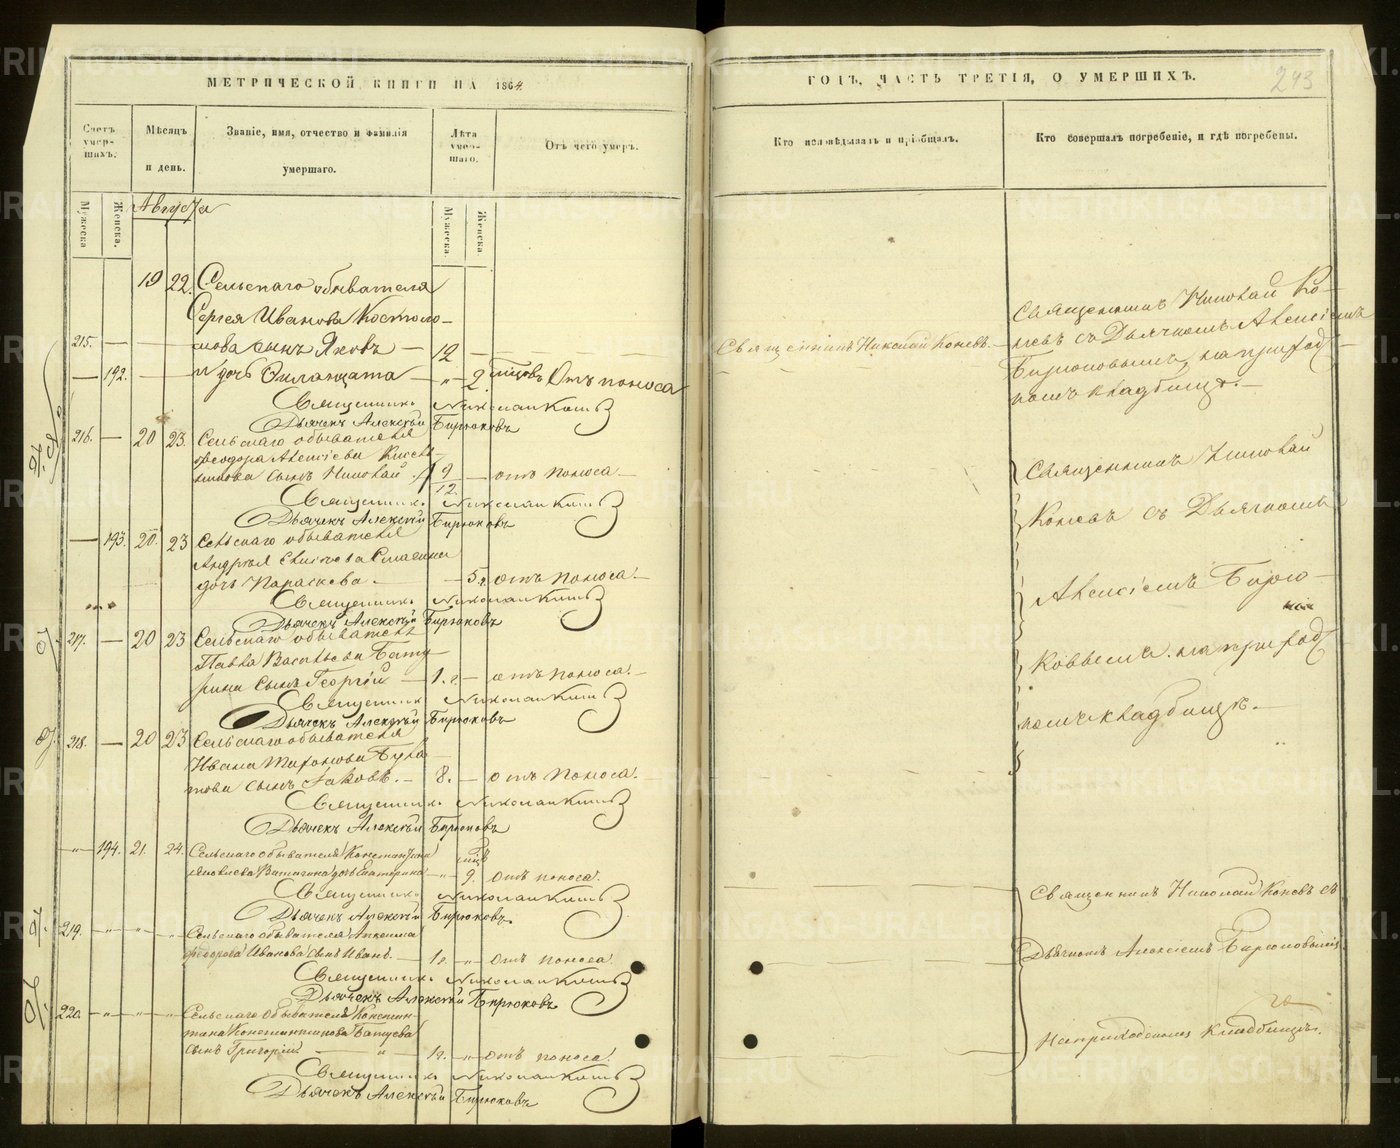 МЕТРИЧЕСКОЙ КНИГИ НА 1864
Счетъ умер-шихъ.
Мѣсяцъ и день.
Званіе, имя, отчество и фамилія умершаго.
Лѣта умер-шаго.
Отъ чего умеръ.
Мужеска
Женска.
Августа
Мужеска.
Женска
19 22. Сельскаго обывателя
Сергея Иванова Костоло-
215. — мова сынъ Яковъ — 12
— 192. и дочь — „ 2. мѣсяцовъ Отъ поноса
Священникъ Николай Коневъ
Дьячекъ Алексѣй Бирюковъ
216. — 20 23. Сельскаго обывателя
Ѳеодора Алексіева
сынъ Николай. 9 — отъ поноса. —
12.
Священникъ Николай Коневъ
Дьячекъ Алексѣй Бирюковъ
— 193. 20. 23 Сельскаго обывателя
Андрея
дочь Параскева. — — 5. отъ поноса. —
Священникъ Николай Коневъ
Дьячекъ Алексѣй Бирюковъ
217. — 20 23 Сельскаго обывателя
Павла Васильева Бату-
рина сынъ Георгій — 1. г. — отъ поноса. —
Священникъ Николай Коневъ
Дьячекъ Алексѣй Бирюковъ
218. — 20 23 Сельскаго обывателя
Ивана Була-
това сынъ Іаковъ. — 8. — отъ поноса. —
Священникъ Николай Коневъ
Дьячекъ Алексѣй Бирюковъ
— „ — 194. 21. 24. Сельскаго обывателя Константина
Яковлева дочь Екатерина — „ 9. отъ поноса.
Священникъ Николай Коневъ
Дьячекъ Алексѣй Бирюковъ.
219. — „ — „ — „ Сельскаго обывателя
Ѳедорова Иванова сынъ Иванъ. — 1 г. — „ — отъ поноса.
Священникъ Николай Коневъ
Дьячекъ Алексѣй Бирюковъ
220. — „ — „ — „ Сельскаго обывателя Констан-
тина Константинова Батуева
сынъ Григорій. — „ 1 г. — „ отъ поноса.
Священникъ Николай Коневъ
Дьячекъ Алексѣй Бирюковъ
ГОДЪ, ЧАСТЬ ТРЕТІЯ, О УМЕРШИХЪ.
243
Кто исповѣдывалъ и пріобщалъ.
Кто совершалъ погребеніе, и гдѣ погребены.
Священникъ Николай Коневъ. —
Священникъ Николай Ко-
невъ съ Дьячкомъ Алексіемъ
Бирюковымъ, на приход-
скомъ кладбищѣ. —
Священникъ Николай
Коневъ съ Дьячкомъ
Алексіемъ Бирю-
ковымъ. на приход
скомъ кладбищѣ. —
Священникъ Николай Коневъ съ
Дьячкомъ Алексіемъ Бирюковымъ
На приходскомъ Кладбищѣ.
METRIKI.GASO-URAL.RU